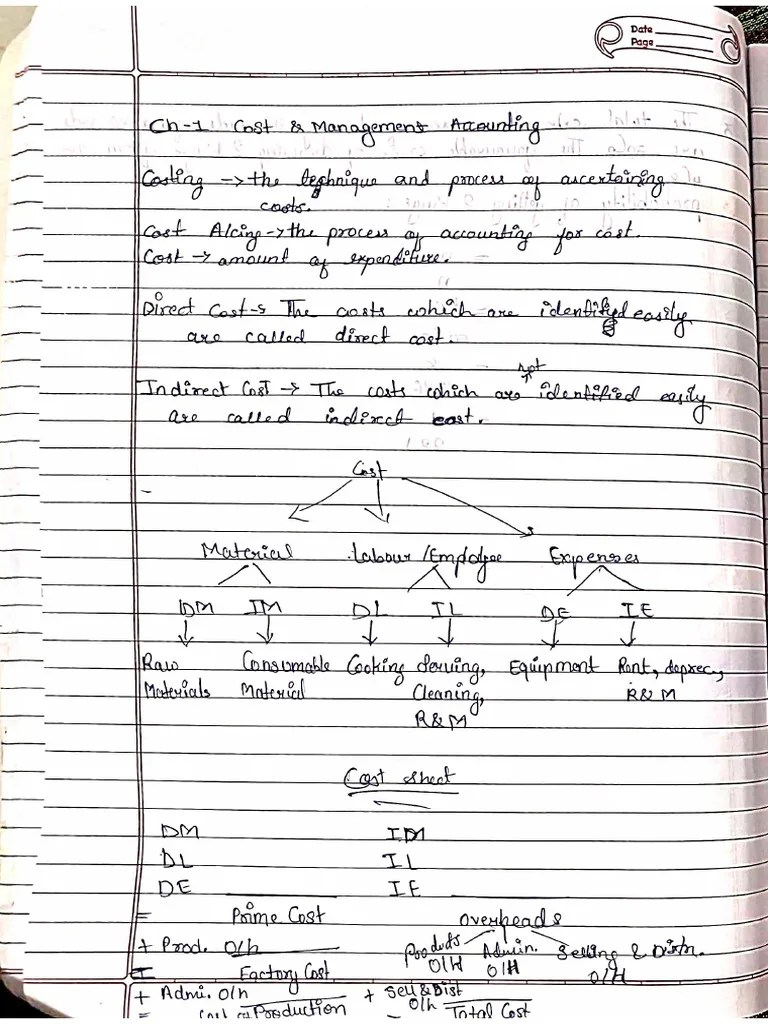 Date
Page
Ch-1 Cost & Management Accounting
Costing → the technique and process of ascertaining
costs.
Cost A/cing → the process of accounting for cost.
Cost → amount of expenditure.
Direct Cost → The costs which are identified easily
are called direct cost.
not
Indirect Cost → The costs which are identified easily
are called indirect cost.
Cost
Material Labour/Employee Expenses
DM IM DL IL DE IE
Raw Consumable Cooking Serving, Equipment Rent, deprec.,
Materials Material Cleaning, R&M
R&M
Cost sheet
DM IM
DL IL
DE IE
= Prime Cost Overheads
+ Prod. O/h Products Admin. Selling & Distn.
= Factory Cost O/H O/H O/H
+ Admi. O/h + Sell & Dist O/h
= Cost of Production = Total Cost